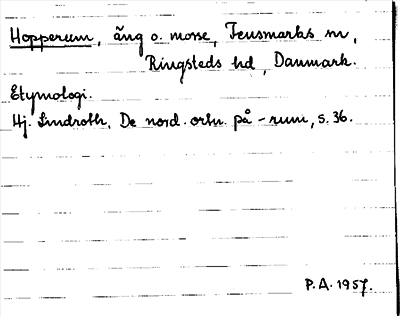 Hopperum, äng o. mosse, Jensmarks sn,
Ringsteds hd, Danmark.
Etymologi.
Hj. Lindroth, De nord. ortn. på -rum, s. 36.
P.A. 1957.